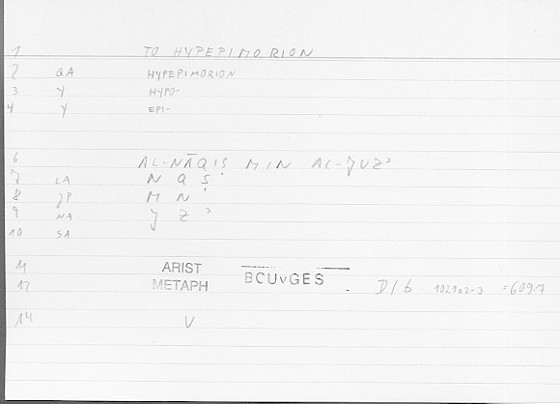 1 TO HYPEPIMORION
2 QA HYPEPIMORION
3 Y HYPO-
4 Y EPI-
6 AL-NĀQIṢ MIN AL-JUZʾ
7 LA N Q Ṣ
8 JP M N
9 NA J Z ʾ
10 SA
11 ARIST BCUVGES
12 METAPH D/b 102102-3 = 609.7
14 V